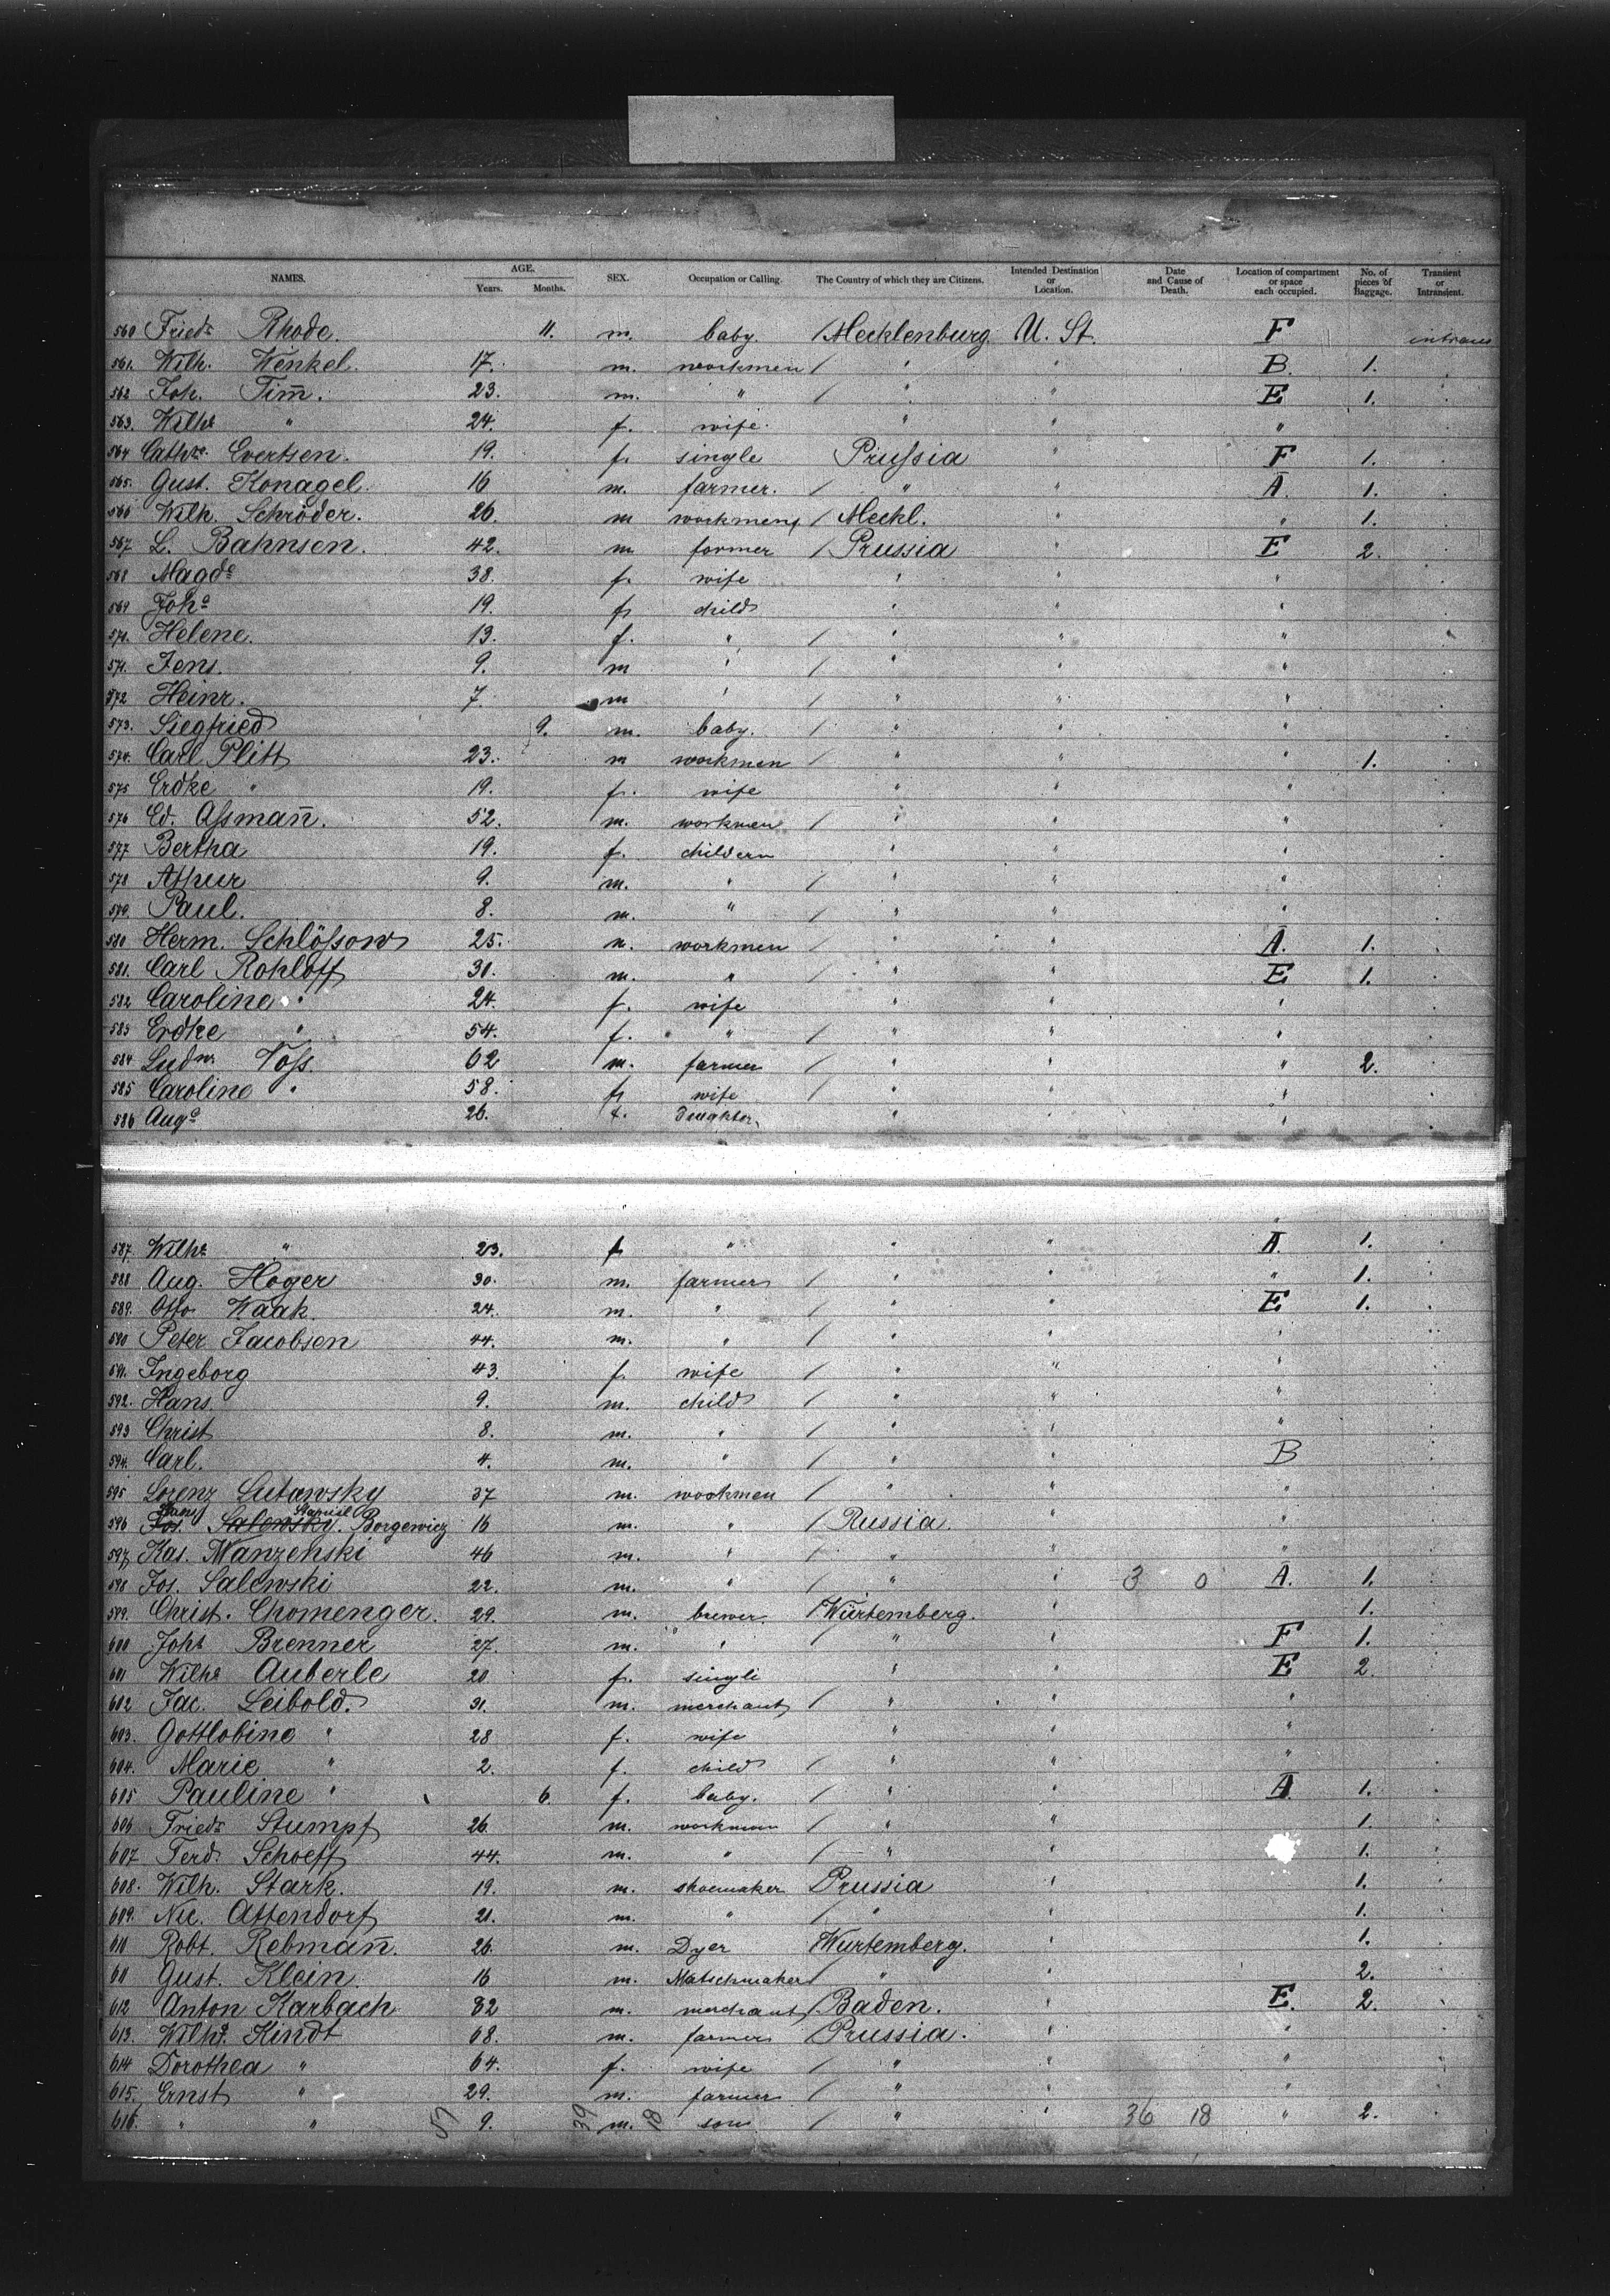 NAMES. AGE. Years. Months. SEX. Occupation or Calling. The Country of which they are Citizens. Intended Destination or Location. Date and Cause of Death. Location of compartment or space each occupied. No. of pieces of Baggage. Transient or Intransient.
560 Friedr. Rhode. 11. m. baby. / Mecklenburg U. St. F intrans
561. Wilh. Wenkel. 17. m. workmen / " " B. 1.
562 Joh. Tim̄. 23. m. " / " " E 1.
563. Wilhe " 24. f. wife. " " "
564 Cathre. Evertsen. 19. f. single Prussia " F 1.
565. Gust. Konagel. 16 m. farmer. / " " A. 1.
566 Wilh. Schröder. 26. m workmen / Meckl. " " 1.
567 L. Bahnsen. 42. m farmer / Prussia " E 2.
568 Magde 38. f. wife " " "
569 Johe 19. f. child " " "
570. Helene. 13. f. " / " " "
571. Jens. 9. m " / " "
572 Heinr. 7. m " / " " "
573. Siegfried 9. m. baby. / " " "
574. Carl Plitt 23. m workmen / " " " 1.
575 Erdke " 19. f. wife " " "
576 Ed. Assman̄. 52. m. workmen / " " "
577 Bertha 19. f. childern " " "
578 Athur 9. m. " / " " "
579. Paul. 8. m. " / " " "
580 Herm. Schlössow 25. m. workmen / " " A. 1.
581. Carl Rohloff 31. m. " / " " E 1.
582 Caroline " 24. f. wife " " "
583 Erdke " 54. f. " / " " "
584 Ludw. Voss. 62 m. farmer / " " " 2.
585 Caroline " 58. f. wife / " " "
586 Auge 26. f. Daughter. " " "
587. Wilhe " 23. f " " " A. 1.
588 Aug. Hoger 30. m. farmer / " " " 1.
589. Otto Waak. 24. m. " / " " E 1.
590 Peter Jacobsen 44. m. " / " " "
591. Ingeborg 43. f. wife / " " "
592. Hans. 9. m. child / " " "
593 Christ 8. m. " / " " "
594. Carl. 4. m. " / " " B
595 Lorenz Lutawsky 37 m. workmen / " " "
596 Jos. Salewsky. Borgewicz 16 m. " / Russia. " "
597 Kas. Wanzenski 46 m. " / " " "
598 Jos. Salewski 22. m. " / " " 3 0 A. 1.
599. Christ. Chomenger. 29. m. brewer / Würtemberg. " 1.
600 Johs Brenner 27. m. " / " " F 1.
601 Wilhe Auberle 20 f. single " " E 2.
602 Jac. Leibold. 31. m. merchant / " " "
603. Gottlobine " 28 f. wife " " "
604. Marie " 2. f. child / " " "
605 Pauline " 6. f. baby. / " " A. 1.
606 Friedr Stumpf 26. m. workman / " " 1.
607 Ferd. Schoeff 44. m. " / " " 1.
608. Wilh. Stark. 19. m. shoemaker Prussia " 1.
609. Nic. Attendorf 21. m. " / " " 1.
610 Robt. Rebman̄. 26. m. Dyer Wurtemberg. " 1.
611 Gust. Klein. 16 m. Matschmaker / " 2.
612 Anton Karbach 32 m. merchant / Baden. " E. 2.
613. Wilh. Kindt 68. m. farmer Prussia. " "
614 Dorothea " 64. f. wife / " " "
615. Ernst " 29. m. farmer / " " "
616. " " 57 9. 39 m. 18 son / " " 36 18 " 2.